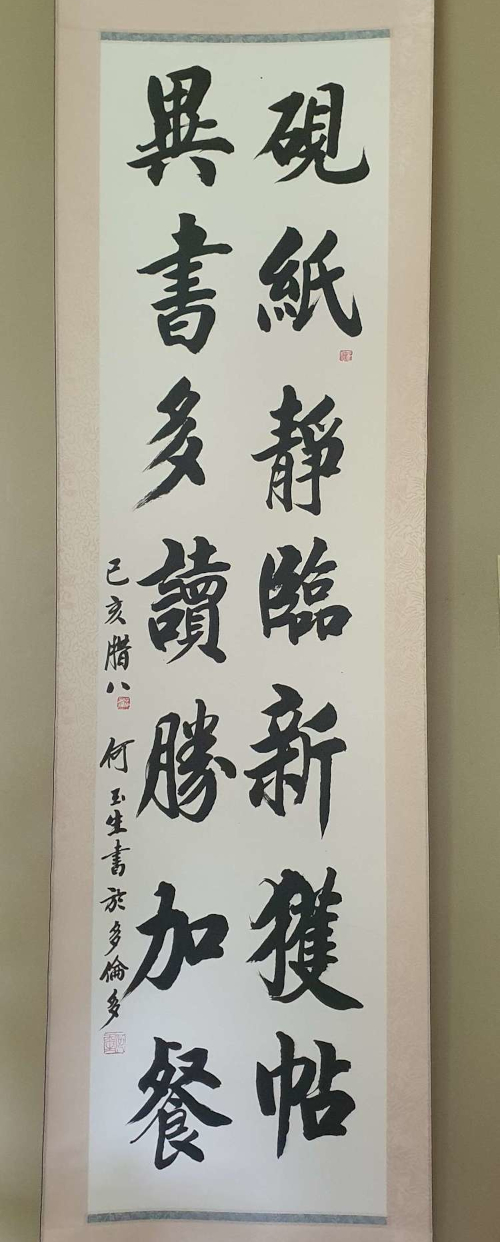 硯紙靜臨新獲帖
異書多讀勝加餐
己亥腊八
何玉生書於多倫多